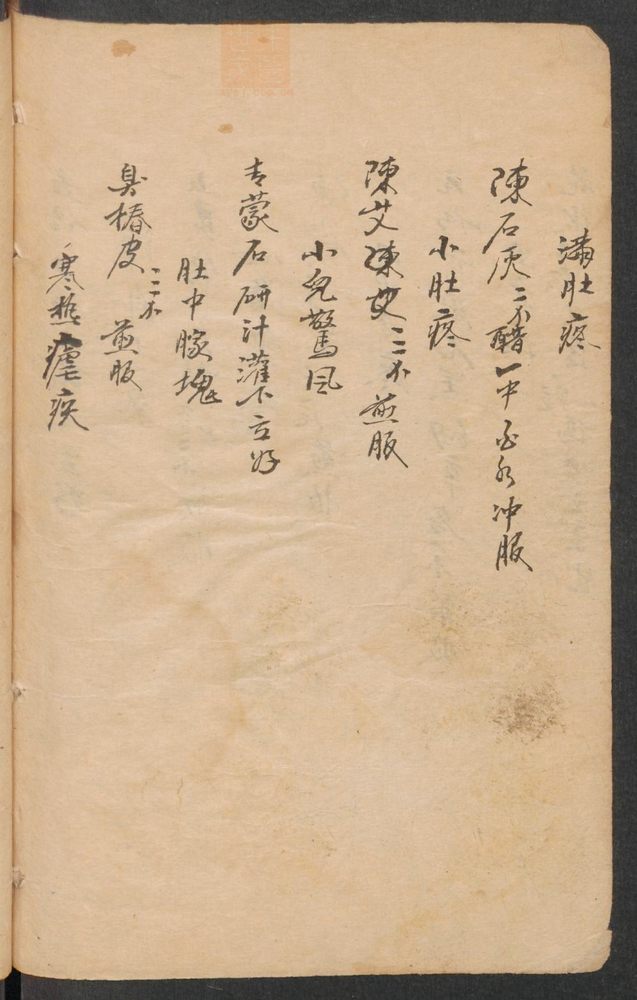 满肚疼
陳石灰二不醋一中 水冲服
小肚疼
陳艾陳艾二不煎服
小兒驚風
青蒙石研汁灌下立好
肚中脹塊
臭椿皮二不 煎服
寒熱瘧疾